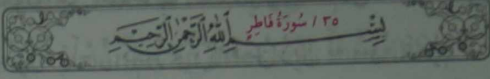 ٣٥ / سُورَةُ فَاطِرٍ
بِسْمِ اللَّهِ الرَّحْمَٰنِ الرَّحِيمِ